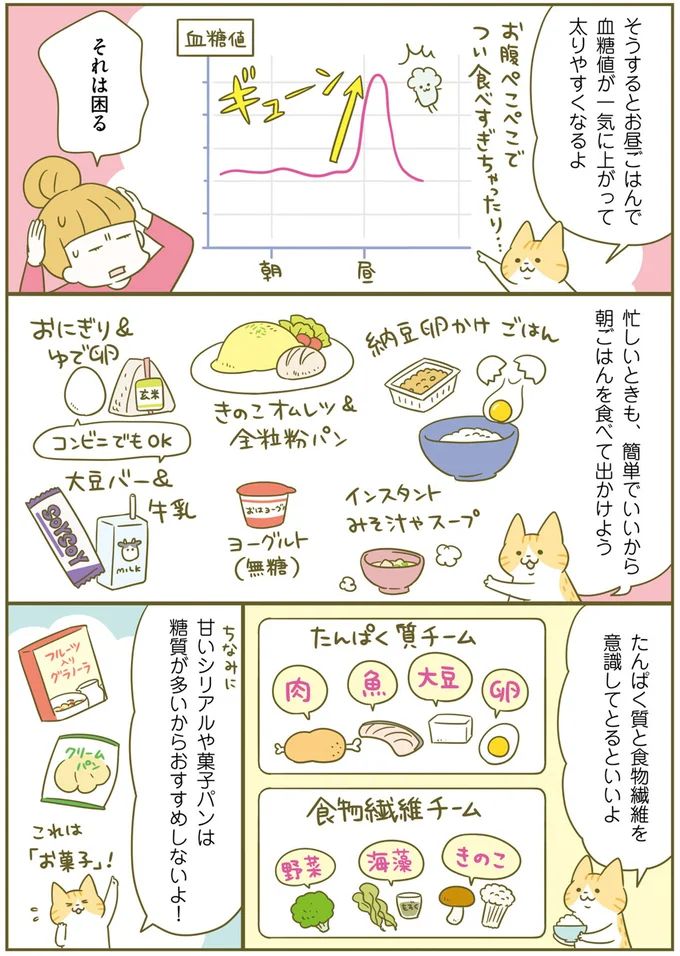 そうするとお昼ごはんで
血糖値が一気に上がって
太りやすくなるよ
お腹ぺこぺこで
つい食べすぎちゃったり…
血糖値
ギューン
朝
昼
それは困る
忙しいときも、簡単でいいから
朝ごはんを食べて出かけよう
おにぎり&
ゆで卵
玄米
コンビニでもOK
きのこオムレツ&
全粒粉パン
納豆卵かけごはん
大豆バー&
牛乳
SOYSOY
MILK
おはヨーグル
ヨーグルト
(無糖)
インスタント
みそ汁やスープ
たんぱく質と食物繊維を
意識してとるといいよ
たんぱく質チーム
肉
魚
大豆
卵
食物繊維チーム
野菜
海藻
もずく
きのこ
ちなみに
甘いシリアルや菓子パンは
糖質が多いからおすすめしないよ!
フルーツ
入り
グラノーラ
クリーム
パン
これは
「お菓子」!